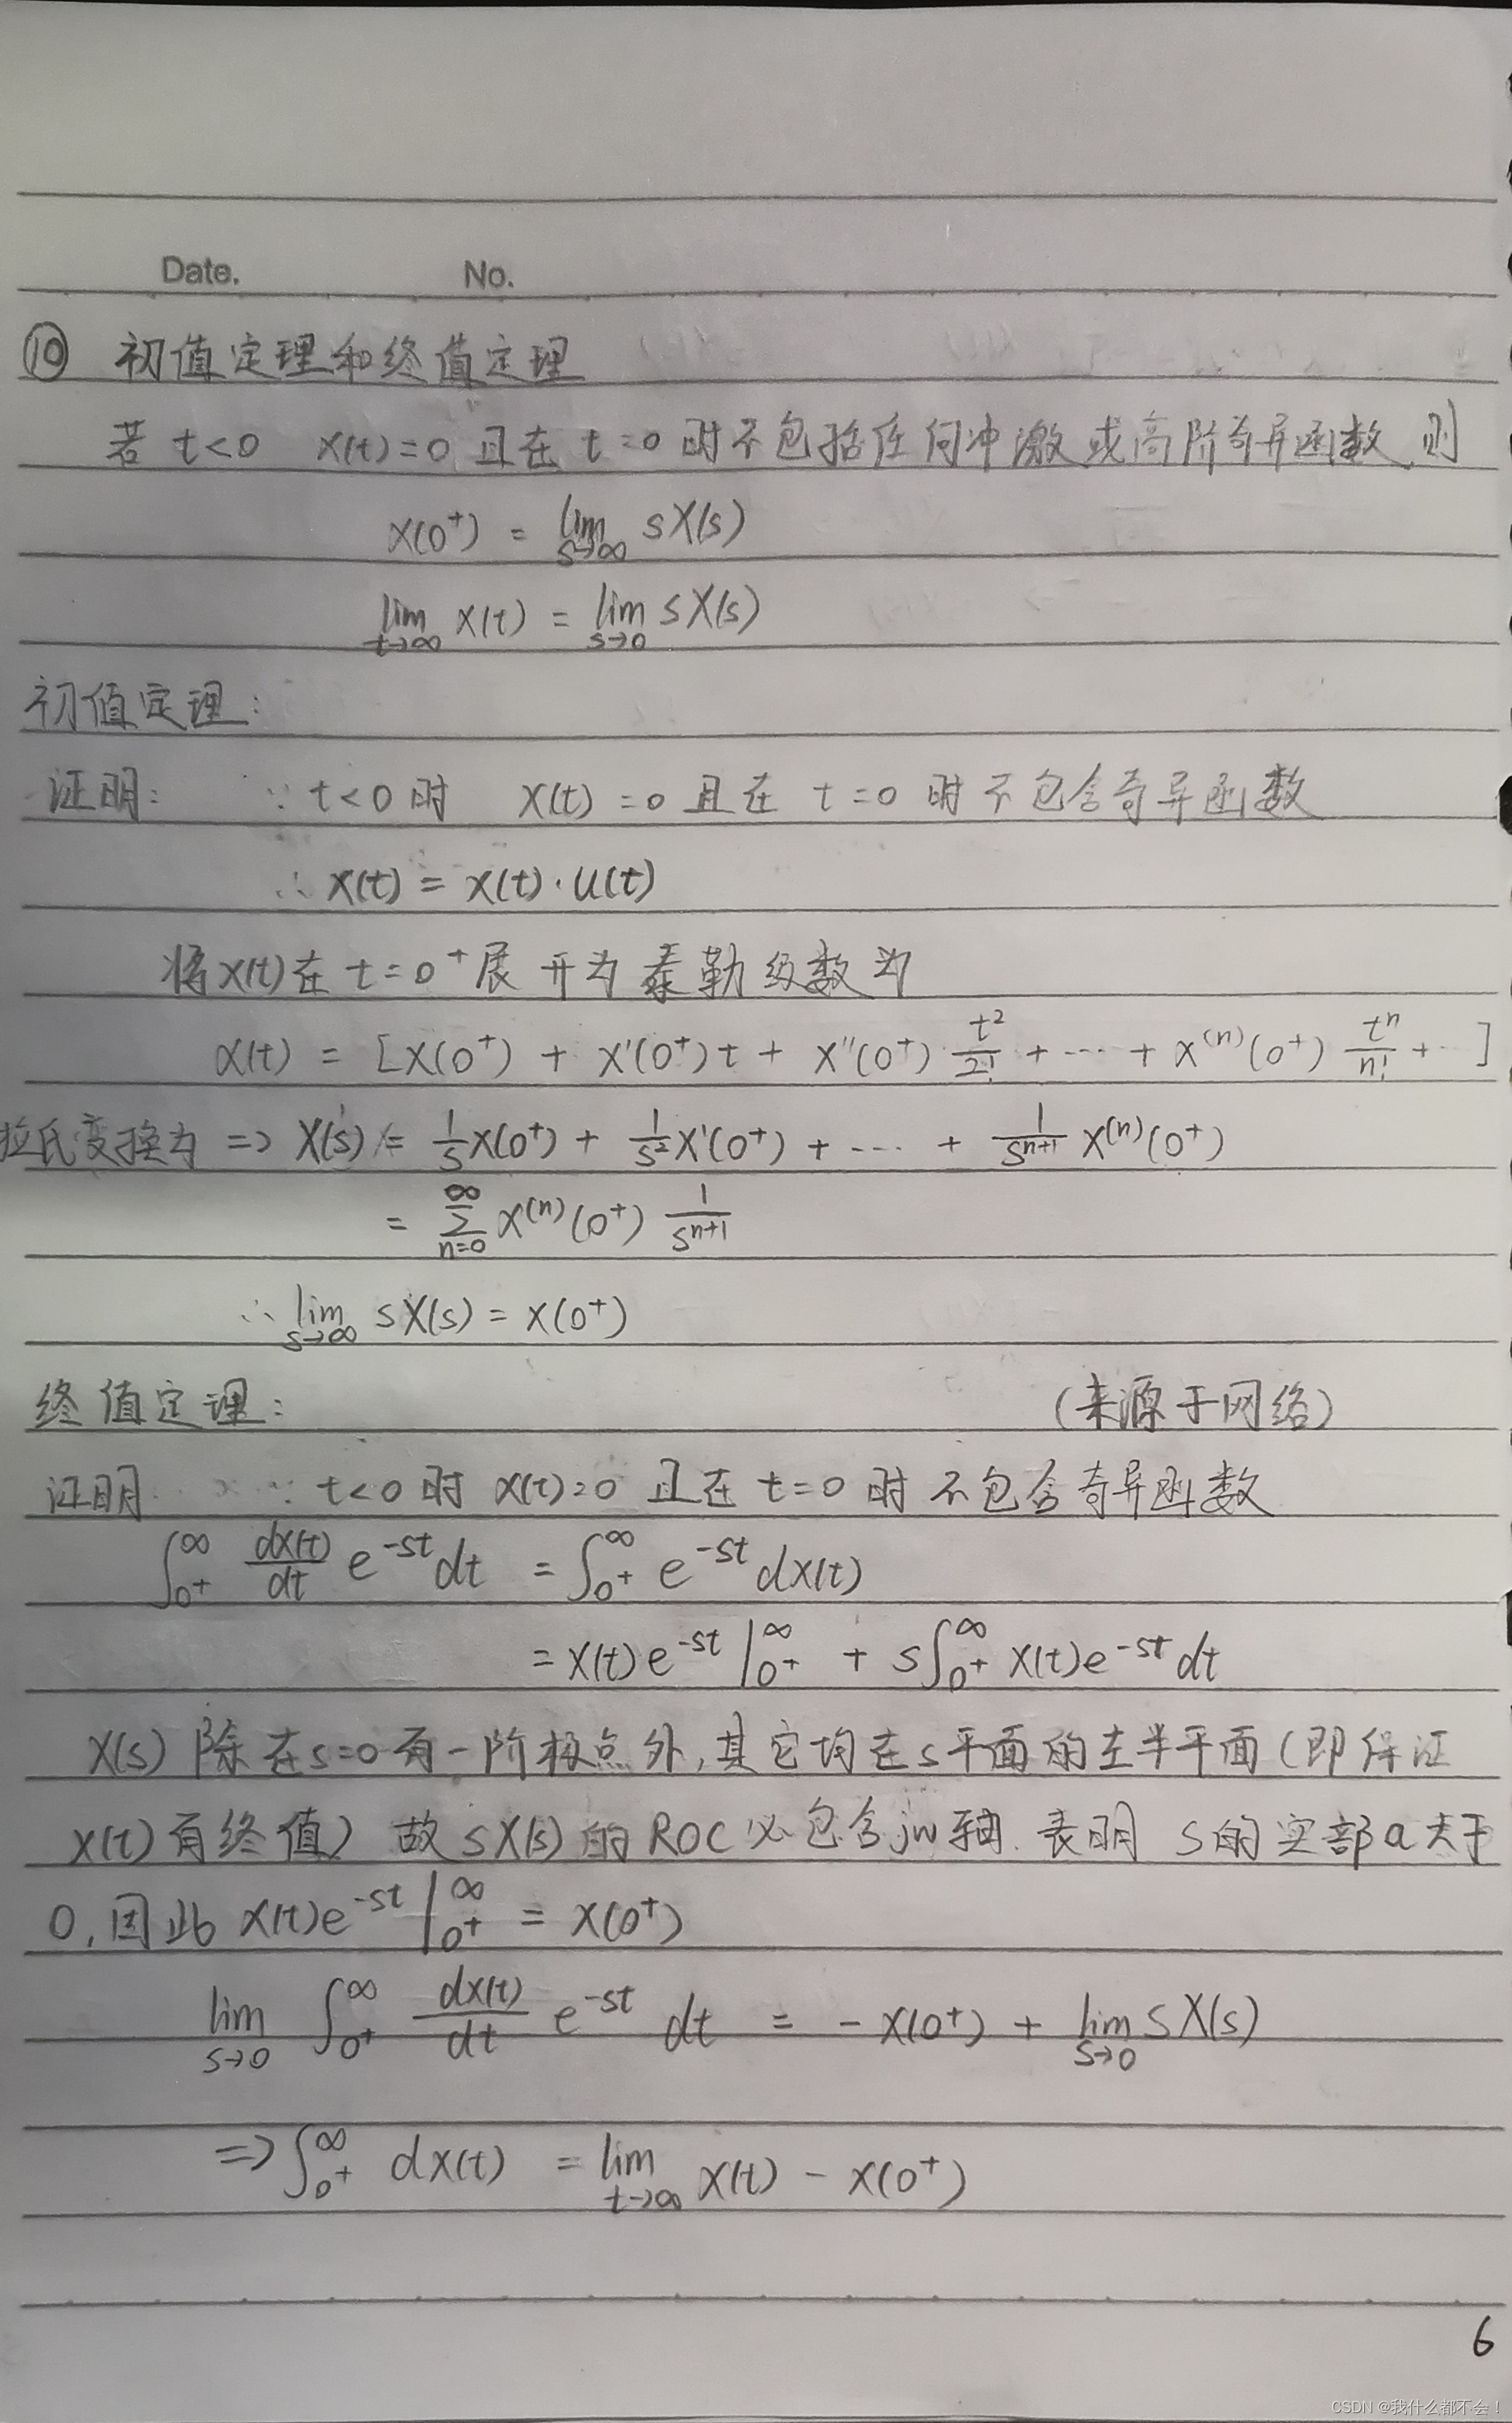 Date. No.
⑩ 初值定理和终值定理
若 t<0 x(t)=0 且在 t=0 时不包括任何冲激或高阶奇异函数,则
x(0⁺) = lim_{s→∞} sX(s)
lim_{t→∞} x(t) = lim_{s→0} sX(s)
初值定理:
证明: ∵ t<0 时 x(t)=0 且在 t=0 时不包含奇异函数
∴ x(t) = x(t)·u(t)
将x(t)在 t=0⁺展开为泰勒级数为
x(t) = [x(0⁺) + x'(0⁺)t + x''(0⁺) t²/2! + ··· + x⁽ⁿ⁾(0⁺) tⁿ/n! + ··]
拉氏变换为 => X(s) = 1/s x(0⁺) + 1/s² x'(0⁺) + ···· + 1/sⁿ⁺¹ x⁽ⁿ⁾(0⁺)
= ∑_{n=0}^{∞} x⁽ⁿ⁾(0⁺) 1/sⁿ⁺¹
∴ lim_{s→∞} sX(s) = x(0⁺)
终值定理: (来源于网络)
证明 ∵ t<0 时 x(t)=0 且在 t=0 时 不包含奇异函数
∫_{0⁺}^{∞} dx(t)/dt e^{-st} dt = ∫_{0⁺}^{∞} e^{-st} dx(t)
= x(t)e^{-st} |_{0⁺}^{∞} + s∫_{0⁺}^{∞} x(t)e^{-st} dt
X(s) 除在s=0有一阶极点外,其它均在s平面的左半平面(即保证
x(t)有终值) 故 sX(s) 的 ROC 必包含jw轴. 表明 s的实部a大于
0,因此 x(t)e^{-st} |_{0⁺}^{∞} = x(0⁺)
lim_{s→0} ∫_{0⁺}^{∞} dx(t)/dt e^{-st} dt = -x(0⁺) + lim_{s→0} sX(s)
=> ∫_{0⁺}^{∞} dx(t) = lim_{t→∞} x(t) - x(0⁺)
6
CSDN @我什么都不会！